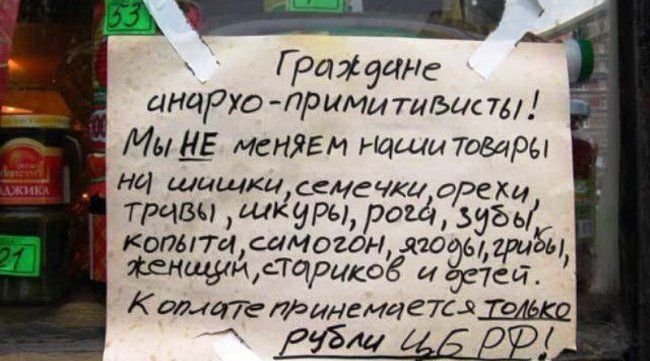 33
Граждане
анархо-примитивисты!
Мы НЕ меняем наши товары
на шишки, семечки, орехи,
травы, шкуры, рога, зубы,
копыта, самогон, ягоды, грибы,
женщин, стариков и детей.
К оплате принемается только
рубли ЦБ РФ!
АДЖИКА
21